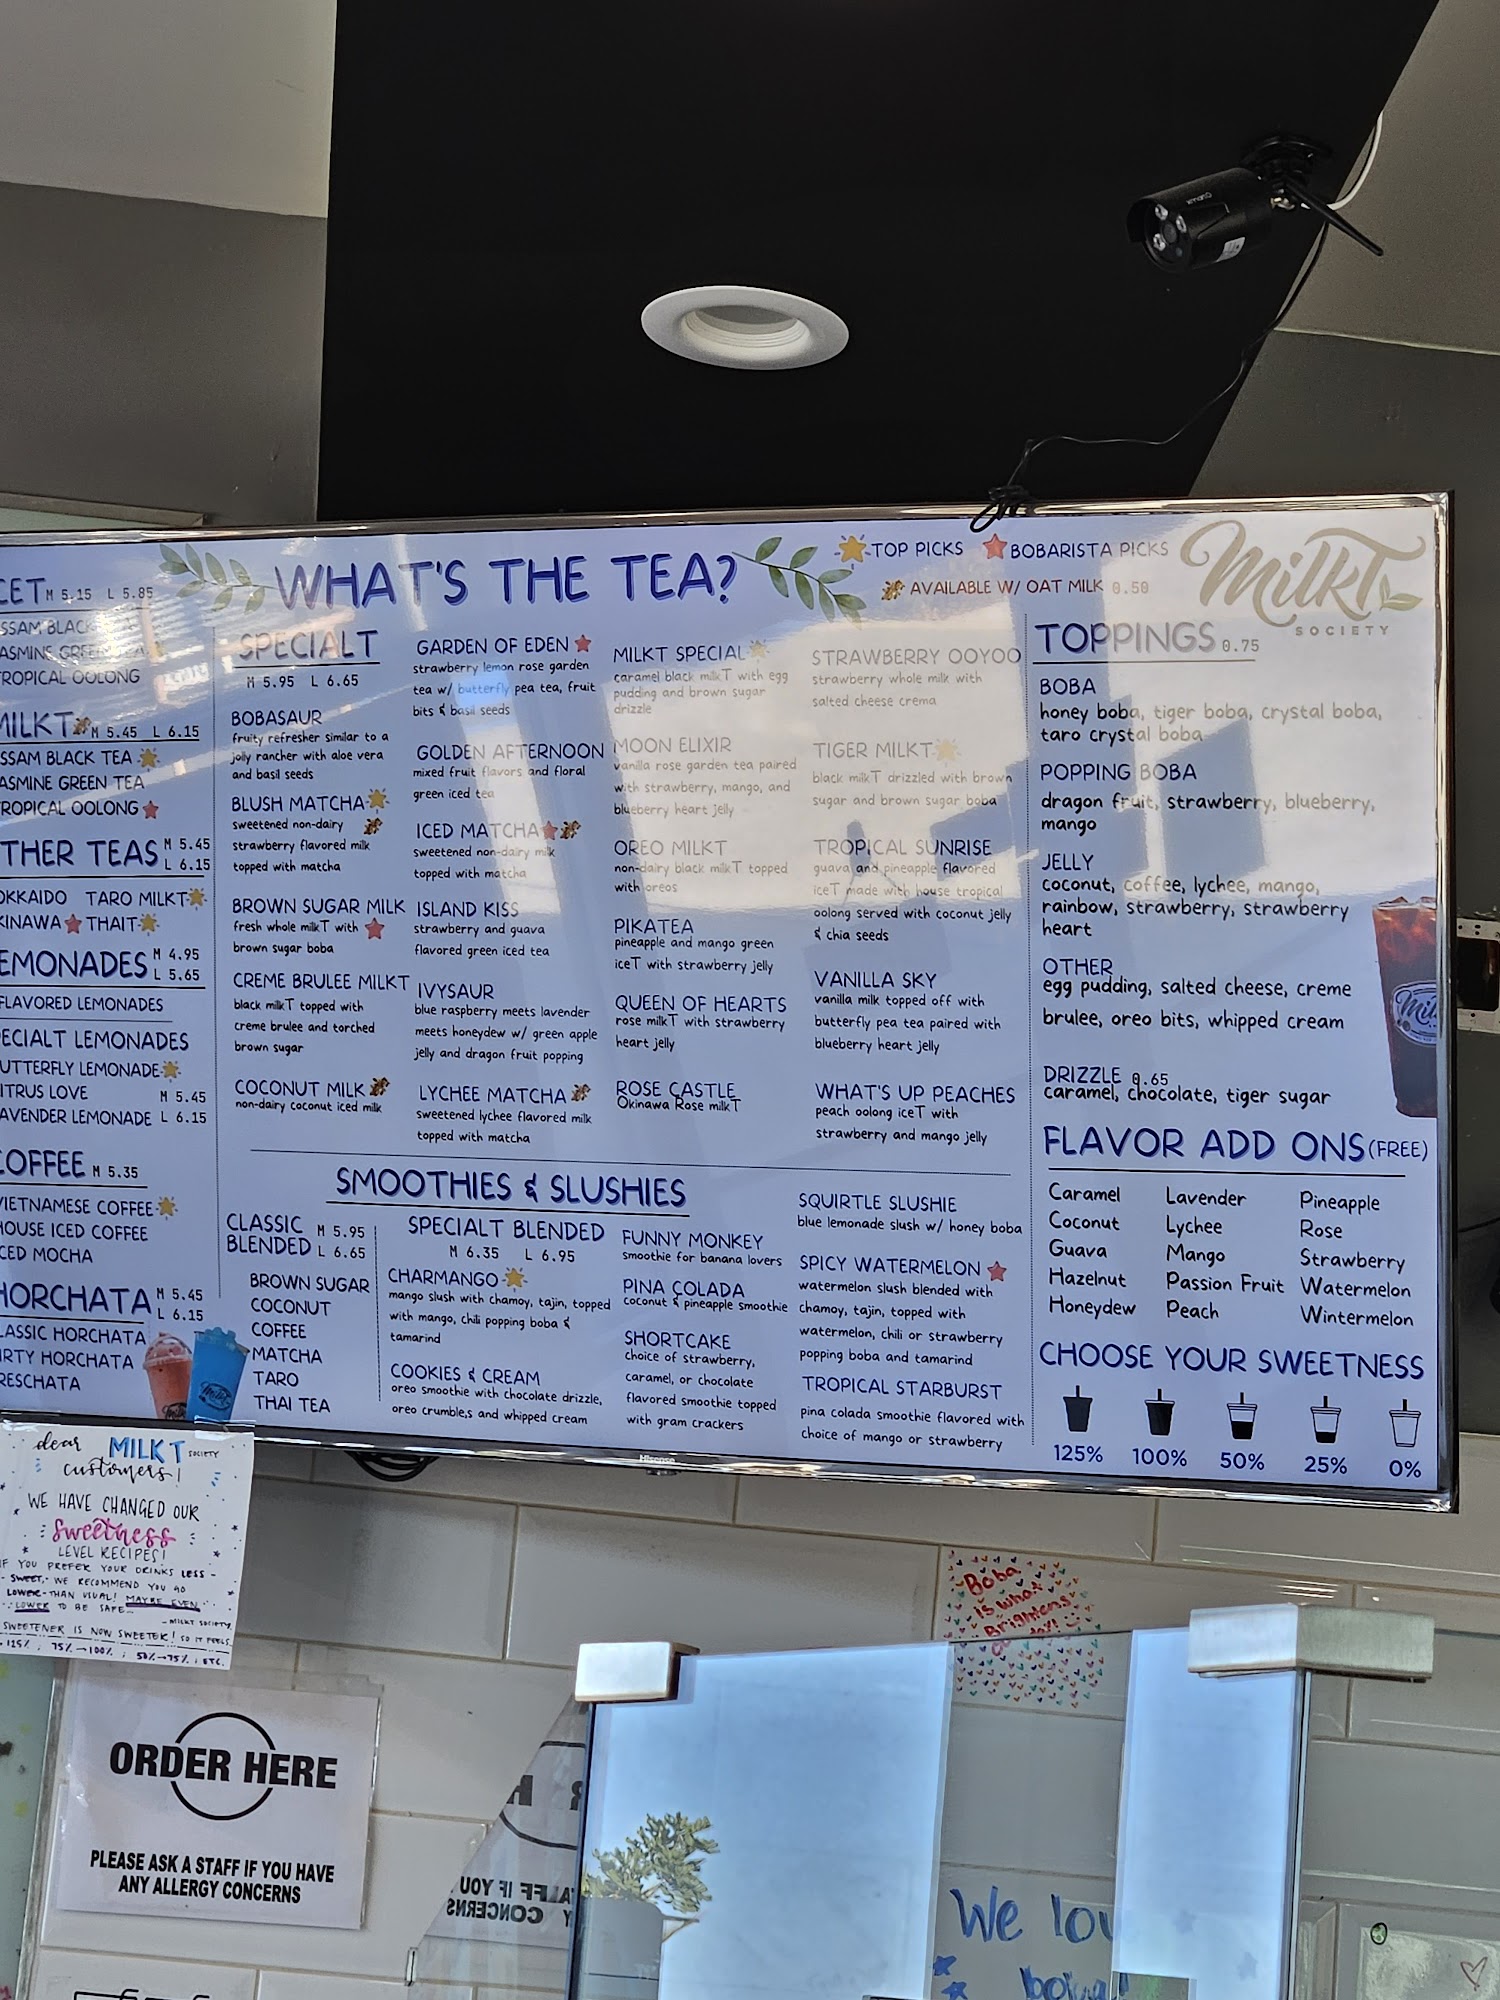 WHAT'S THE TEA?
TOP PICKS BOBARISTA PICKS
AVAILABLE W/ OAT MILK 0.50
MilkT
SOCIETY
CET M 5.15 L 5.85
SSAM BLACK
ASMINE GREEN TEA
ROPICAL OOLONG
MILKT M 5.45 L 6.15
SSAM BLACK TEA
ASMINE GREEN TEA
ROPICAL OOLONG
THER TEAS M 5.45
L 6.15
OKKAIDO TARO MILKT
KINAWA THAIT
EMONADES M 4.95
L 5.65
FLAVORED LEMONADES
PECIALT LEMONADES
UTTERFLY LEMONADE
ITRUS LOVE M 5.45
AVENDER LEMONADE L 6.15
COFFEE M 5.35
VIETNAMESE COFFEE
HOUSE ICED COFFEE
CED MOCHA
HORCHATA M 5.45
L 6.15
LASSIC HORCHATA
IRTY HORCHATA
RESCHATA
SPECIALT
M 5.95 L 6.65
BOBASAUR
fruity refresher similar to a
jolly rancher with aloe vera
and basil seeds
BLUSH MATCHA
sweetened non-dairy
strawberry flavored milk
topped with matcha
BROWN SUGAR MILK
fresh whole milkT with
brown sugar boba
CREME BRULEE MILKT
black milkT topped with
creme brulee and torched
brown sugar
COCONUT MILK
non-dairy coconut iced milk
GARDEN OF EDEN
strawberry lemon rose garden
tea w/ butterfly pea tea, fruit
bits & basil seeds
GOLDEN AFTERNOON
mixed fruit flavors and floral
green iced tea
ICED MATCHA
sweetened non-dairy milk
topped with matcha
ISLAND KISS
strawberry and guava
flavored green iced tea
IVYSAUR
blue raspberry meets lavender
meets honeydew w/ green apple
jelly and dragon fruit popping
LYCHEE MATCHA
sweetened lychee flavored milk
topped with matcha
MILKT SPECIAL
caramel black milkT with egg
pudding and brown sugar
drizzle
MOON ELIXIR
vanilla rose garden tea paired
with strawberry, mango, and
blueberry heart jelly
OREO MILKT
non-dairy black milkT topped
with oreos
PIKATEA
pineapple and mango green
iceT with strawberry jelly
QUEEN OF HEARTS
rose milkT with strawberry
heart jelly
ROSE CASTLE
Okinawa Rose milkT
STRAWBERRY OOYOO
strawberry whole milk with
salted cheese crema
TIGER MILKT
black milkT drizzled with brown
sugar and brown sugar boba
TROPICAL SUNRISE
guava and pineapple flavored
iceT made with house tropical
oolong served with coconut jelly
& chia seeds
VANILLA SKY
vanilla milk topped off with
butterfly pea tea paired with
blueberry heart jelly
WHAT'S UP PEACHES
peach oolong iceT with
strawberry and mango jelly
SMOOTHIES & SLUSHIES
CLASSIC M 5.95
BLENDED L 6.65
BROWN SUGAR
COCONUT
COFFEE
MATCHA
TARO
THAI TEA
SPECIALT BLENDED
M 6.35 L 6.95
CHARMANGO
mango slush with chamoy, tajin, topped
with mango, chili popping boba &
tamarind
COOKIES & CREAM
oreo smoothie with chocolate drizzle,
oreo crumble,s and whipped cream
FUNNY MONKEY
smoothie for banana lovers
PINA COLADA
coconut & pineapple smoothie
SHORTCAKE
choice of strawberry,
caramel, or chocolate
flavored smoothie topped
with gram crackers
SQUIRTLE SLUSHIE
blue lemonade slush w/ honey boba
SPICY WATERMELON
watermelon slush blended with
chamoy, tajin, topped with
watermelon, chili or strawberry
popping boba and tamarind
TROPICAL STARBURST
pina colada smoothie flavored with
choice of mango or strawberry
TOPPINGS 0.75
BOBA
honey boba, tiger boba, crystal boba,
taro crystal boba
POPPING BOBA
dragon fruit, strawberry, blueberry,
mango
JELLY
coconut, coffee, lychee, mango,
rainbow, strawberry, strawberry
heart
OTHER
egg pudding, salted cheese, creme
brulee, oreo bits, whipped cream
DRIZZLE 0.65
caramel, chocolate, tiger sugar
FLAVOR ADD ONS (FREE)
Caramel Lavender Pineapple
Coconut Lychee Rose
Guava Mango Strawberry
Hazelnut Passion Fruit Watermelon
Honeydew Peach Wintermelon
CHOOSE YOUR SWEETNESS
125% 100% 50% 25% 0%
Hisense
dear MILKT SOCIETY
customers!
WE HAVE CHANGED OUR
sweetness
LEVEL RECIPES!
IF YOU PREFER YOUR DRINKS LESS -
SWEET, WE RECOMMEND YOU GO
LOWER THAN USUAL! MAYBE EVEN
LOWER TO BE SAFE...
-MILKT SOCIETY
SWEETENER IS NOW SWEETER! SO IT FEELS
125% ; 75%→100% ; 50%→75% ; ETC.
ORDER HERE
PLEASE ASK A STAFF IF YOU HAVE
ANY ALLERGY CONCERNS
Boba
is what
Brightens
We lov
boba!